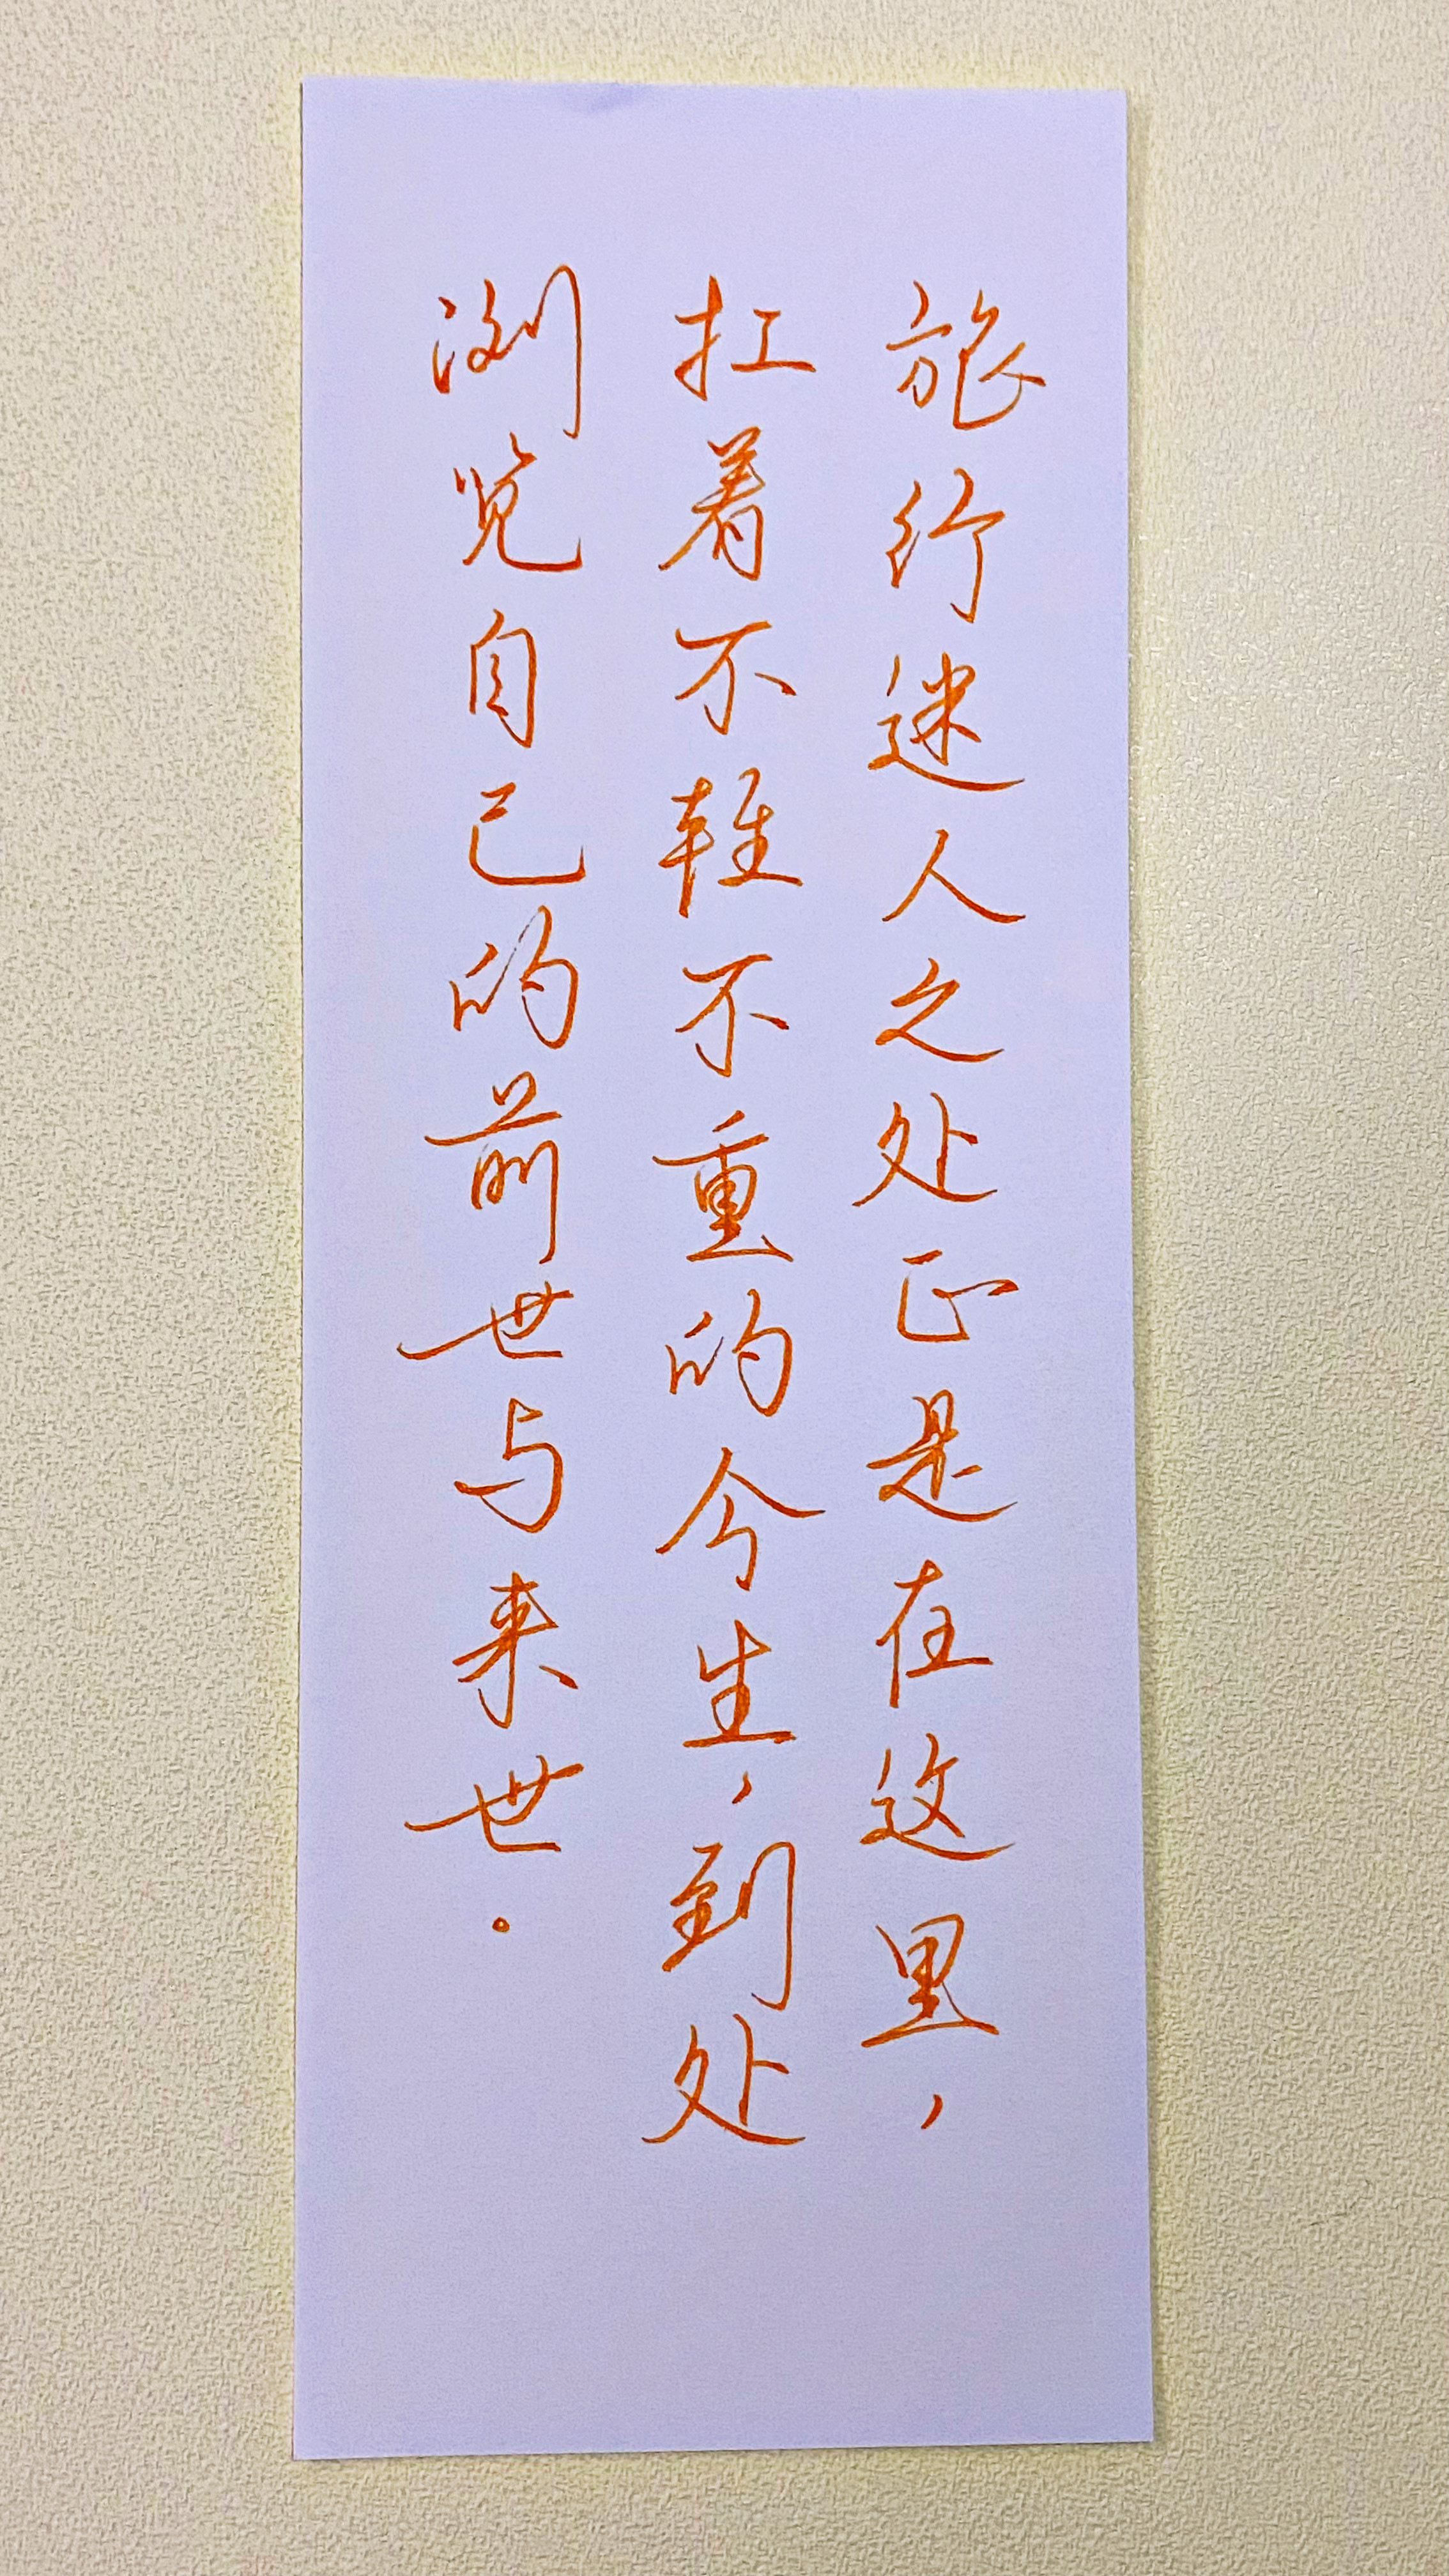 旅行迷人之处正是在这里，
扛着不轻不重的今生，到处
浏览自己的前世与来世。